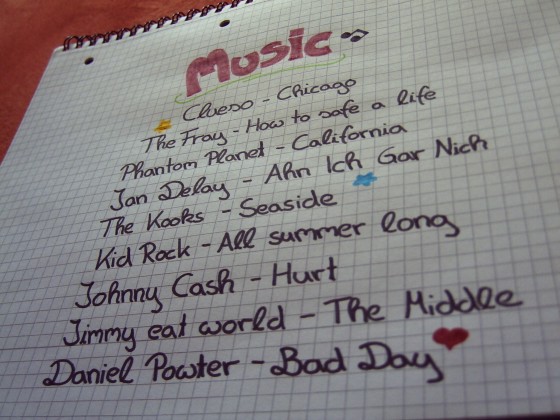 Music
Clueso - Chicago
The Fray - How to safe a life
Phantom Planet - California
Jan Delay - Ahn Ich Gar Nich
The Kooks - Seaside
Kid Rock - All summer long
Johnny Cash - Hurt
Jimmy eat world - The Middle
Daniel Powter - Bad Day